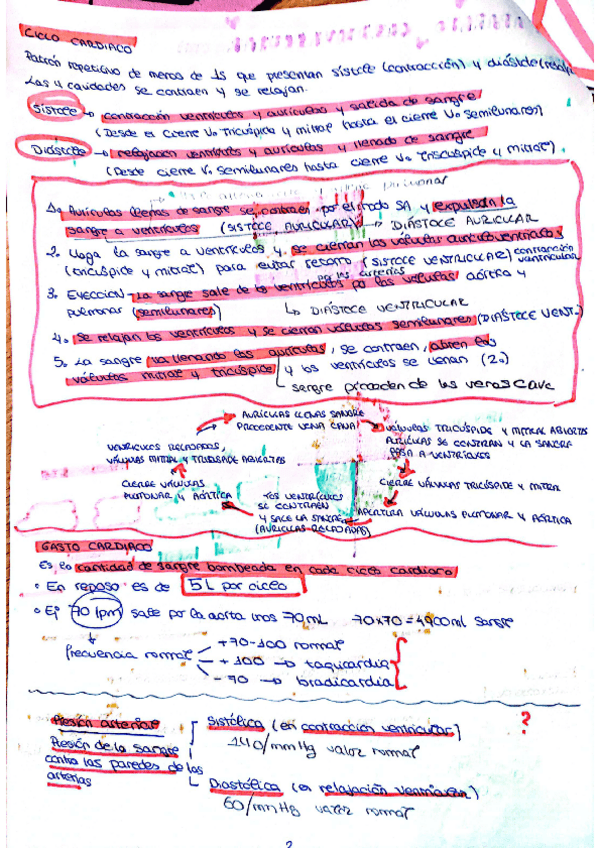 CICLO CARDIACO
Patrón repetitivo de menos de 1s que presentan sístole (contracción) y diástole
Las 4 cavidades se contraen y se relajan.
Sístole → contracción ventrículos y aurículas y salida de sangre
(Desde el cierre V. Tricúspide y mitral hasta el cierre V. Semilunares)
Diástole → relajación ventrículos y aurículas y llenado de sangre
(Desde cierre V. semilunares hasta cierre V. Triscuspide y mitral).
1. Aurículas llenas de sangre se contraen por el nodo SA y expulsan la
sangre a ventrículos (SISTOLE AURICULAR) → DIÁSTOLE AURICULAR
2. Llega la sangre a ventrículos y se cierran las válvulas auriculoventriculares
(tricúspide y mitral) para evitar retorno (SISTOLE VENTRICULAR) contracción ventricular
por las arterias
3. Eyección - La sangre sale de los ventrículos por las válvulas aórtica y
pulmonar (semilunares) ↳ DIÁSTOLE VENTRICULAR
4. Se relajan los ventrículos y se cierran válvulas semilunares (DIÁSTOLE VENT.)
5. La sangre va llenando las aurículas, se contraen, abren las
válvulas mitral y tricúspide y los ventrículos se llenan (2.)
sangre proceden de las venas cava
AURÍCULAS LLENAS SANGRE
PROCEDENTE VENA CAVA
VÁLVULAS TRICÚSPIDE Y MITRAL ABIERTAS
AURÍCULAS SE CONTRAN Y LA SANGRE
PASA A VENTRÍCULOS
CIERRE VÁLVULAS TRICÚSPIDE Y MITRAL
APERTURA VÁLVULAS PULMONAR Y AÓRTICA
LOS VENTRÍCULOS
SE CONTRAEN
Y SALE LA SANGRE
(AURÍCULAS RELAJADAS)
CIERRE VÁLVULAS
PULMONAR Y AÓRTICA
VENTRÍCULOS RELAJADOS,
VÁLVULAS MITRAL Y TRICÚSPIDE ABIERTAS
GASTO CARDIACO
Es la cantidad de sangre bombeada en cada ciclo cardiaco
• En reposo es de 5 L por ciclo
• Ej 70 lpm sale por la aorta unos 70 mL 70x70 = 4900 ml sangre
frecuencia normal
+70-100 normal
+100 → taquicardia
-70 → bradicardia
Presión arterial
Presión de la sangre
contra las paredes de las
arterias
Sistólica (en contracción ventricular)
140/mmHg valor normal
?
Diastólica (en relajación ventricular)
60/mmHg valor normal
2